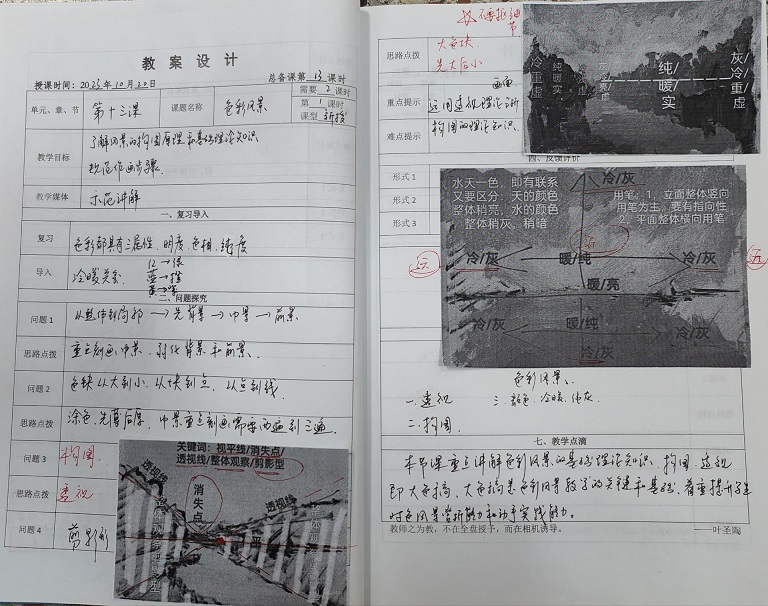 教案设计
授课时间：2023年10月20日
总备课第13课时
单元、章、节 第十三课 课题名称 色彩风景
需要2课时
第1课时
课型 新授
教学目标
了解风景的构图原理和基础理论知识
规范作画步骤.
教学媒体 示范讲解
一、复习导入
复习 色彩都具有三属性. 明度. 色相. 纯度
导入 冷暖关系.
红→绿
蓝→橙
二、问题探究
问题1 从整体到局部→先背景→中景→前景
思路点拨 重点刻画中景. 弱化背景和前景.
问题2 色块从大到小. 从块到点. 从点到线.
思路点拨 涂色.先薄后厚. 中景重点刻画需要两遍到三遍
问题3 构图
思路点拨 透视
问题4 剪影形
关键词：视平线/消失点/
透视线/整体观察/剪影型
透视线
消失点
透视线
平
不要抠细节
思路点拨
大色块
先大后小
重点提示
难点提示
构图的理论知识.
冷重虚
纯暖实
灰/冷/重/虚
四、反馈评价
形式1
形式2
形式3
水天一色，即有联系
又要区分：天的颜色
整体稍亮，水的颜色
整体稍灰、稍暗
冷/灰
用笔：1，立面整体竖向
用笔为主，要有指向性
2，平面整体横向用笔
远
冷/灰
暖/纯
冷/灰
暖/亮
冷/灰
暖/纯
冷/灰
冷/灰
色彩风景.
一.透视
二.构图
三.颜色.冷暖.纯灰.
七、教学点滴
本节课重点讲解色彩风景的基础理论知识. 构图. 透视
即大色稿. 大色稿是色彩风景教学的关键和基础. 着重提升学生
对色风景赏析能力和动手实践能力.
教师之为教，不在全盘授予，而在相机诱导。
——叶圣陶